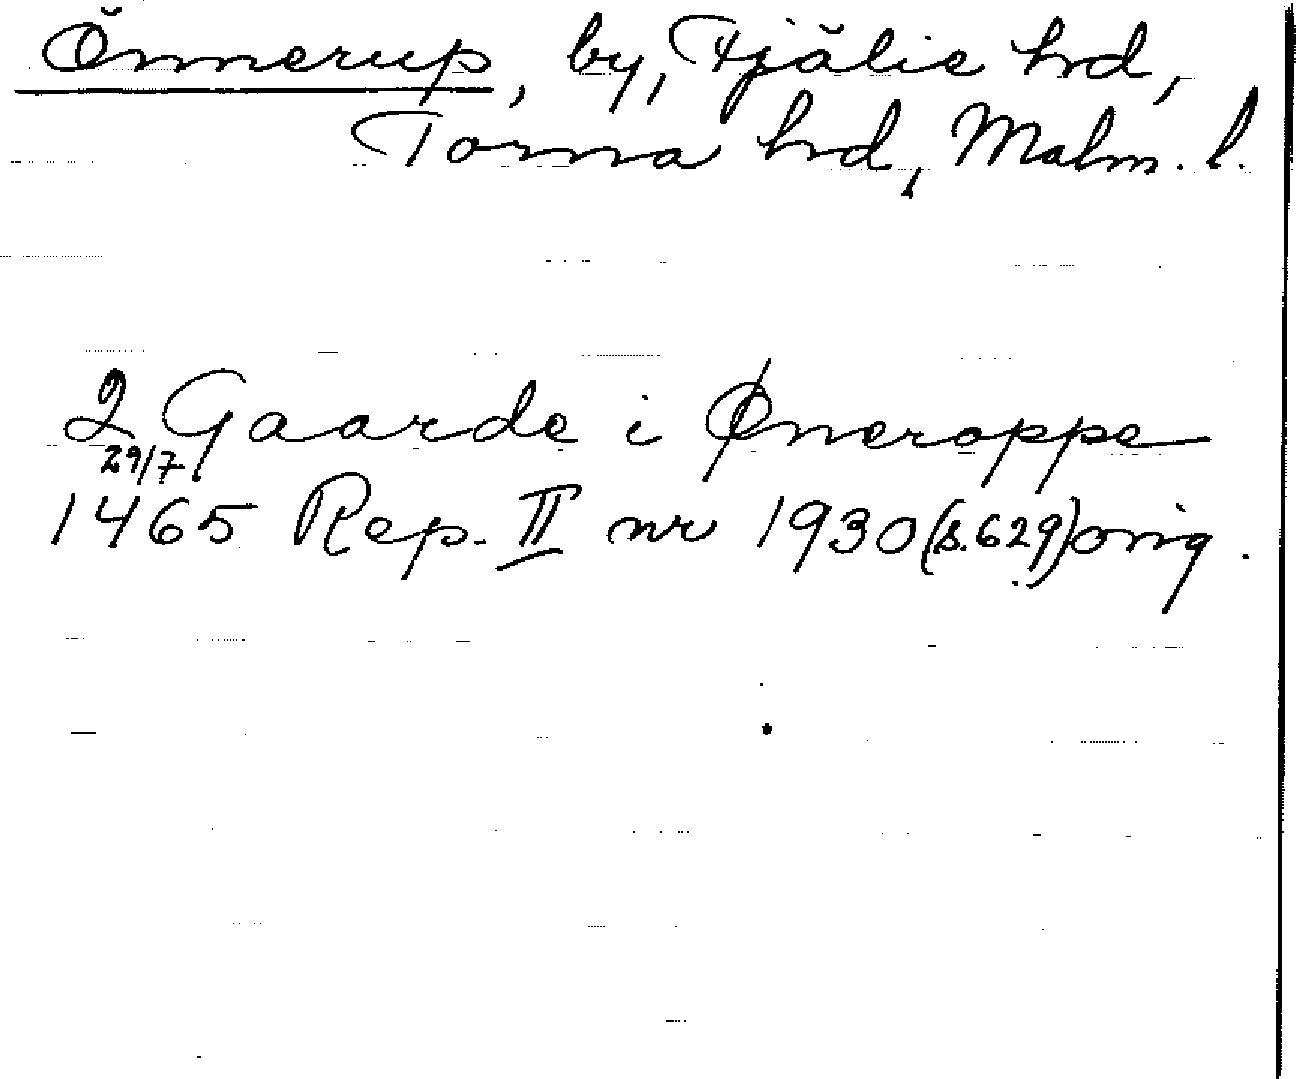 Önnerup, by, Fjälie hrd,
Torna hrd, Malm. l.
2 Gaarde i Øneroppe
29/7
1465 Rep. II nr 1930 (s. 629) orig.